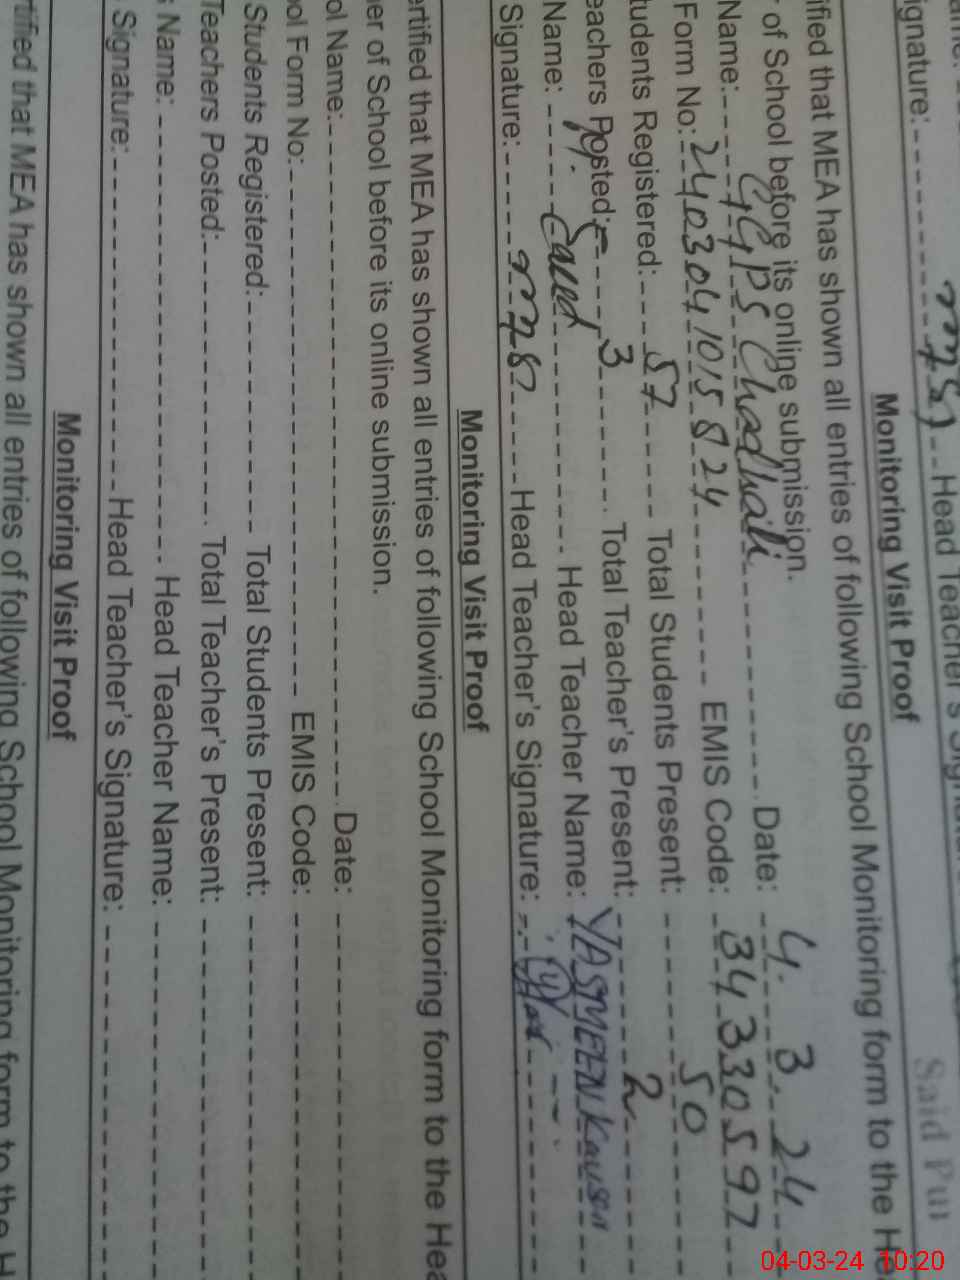 ignature:
Head Teacher's
Said Pur
Monitoring Visit Proof
ified that MEA has shown all entries of following School Monitoring form to the He
r of School before its online submission.
Name: GGPS Chadhali Date: 4. 3. 24
Form No: 2403041015824 EMIS Code: 34330597
tudents Registered: 57 Total Students Present: 50
eachers Posted: 3 Total Teacher's Present: 2
Name: M. Saeed Head Teacher Name: YASMEEN Kausar
Signature: Head Teacher's Signature:
Monitoring Visit Proof
ertified that MEA has shown all entries of following School Monitoring form to the Hea
er of School before its online submission.
ol Name: Date:
ol Form No: EMIS Code:
Students Registered: Total Students Present:
Teachers Posted: Total Teacher's Present:
s Name: Head Teacher Name:
Signature: Head Teacher's Signature:
Monitoring Visit Proof
rtified that MEA has shown all entries of following School Monitoring form to the H
04-03-24 10:20